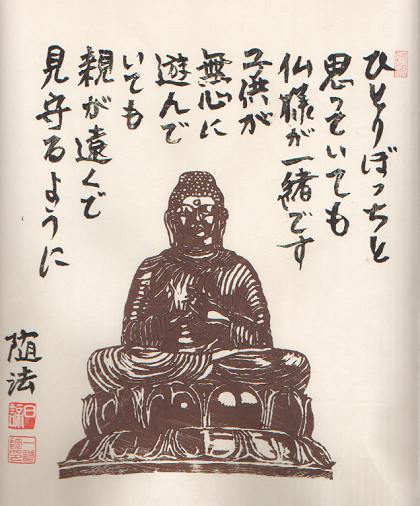 ひとりぼっちと
思っていても
仏様が一緒です
子供が
無心に
遊んで
いても
親が遠くで
見守るように
随法